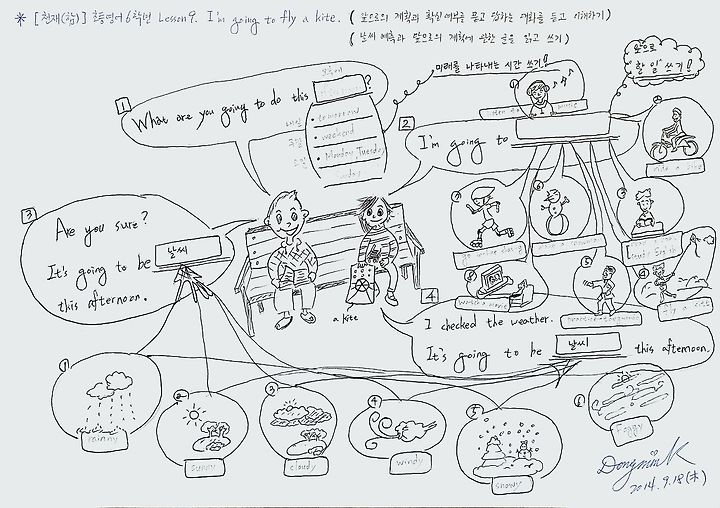 * [천재(함)] 초등영어 6학년 Lesson 9. I'm going to fly a kite. ( 앞으로의 계획과 확실 여부를 묻고 답하는 대화를 듣고 이해하기)
( 날씨 예측과 앞으로의 계획에 관한 글을 읽고 쓰기)
미래를 나타내는 시간 쓰기!
앞으로 "할 일" 쓰기!
1
What are you going to do this ?
내일 • tomorrow
주말 • weekend
요일 • Monday, Tuesday
Sunday
2
I'm going to
ride a bike
study English
watch a movie
fly a kite
3
Are you sure?
It's going to be 날씨
this afternoon.
a kite
4
I checked the weather.
It's going to be 날씨 this afternoon.
① rainny
② sunny
③ cloudy
④ windy
⑤ snowy
⑥ Foggy
Dongmin K
2014. 9. 18 (木)